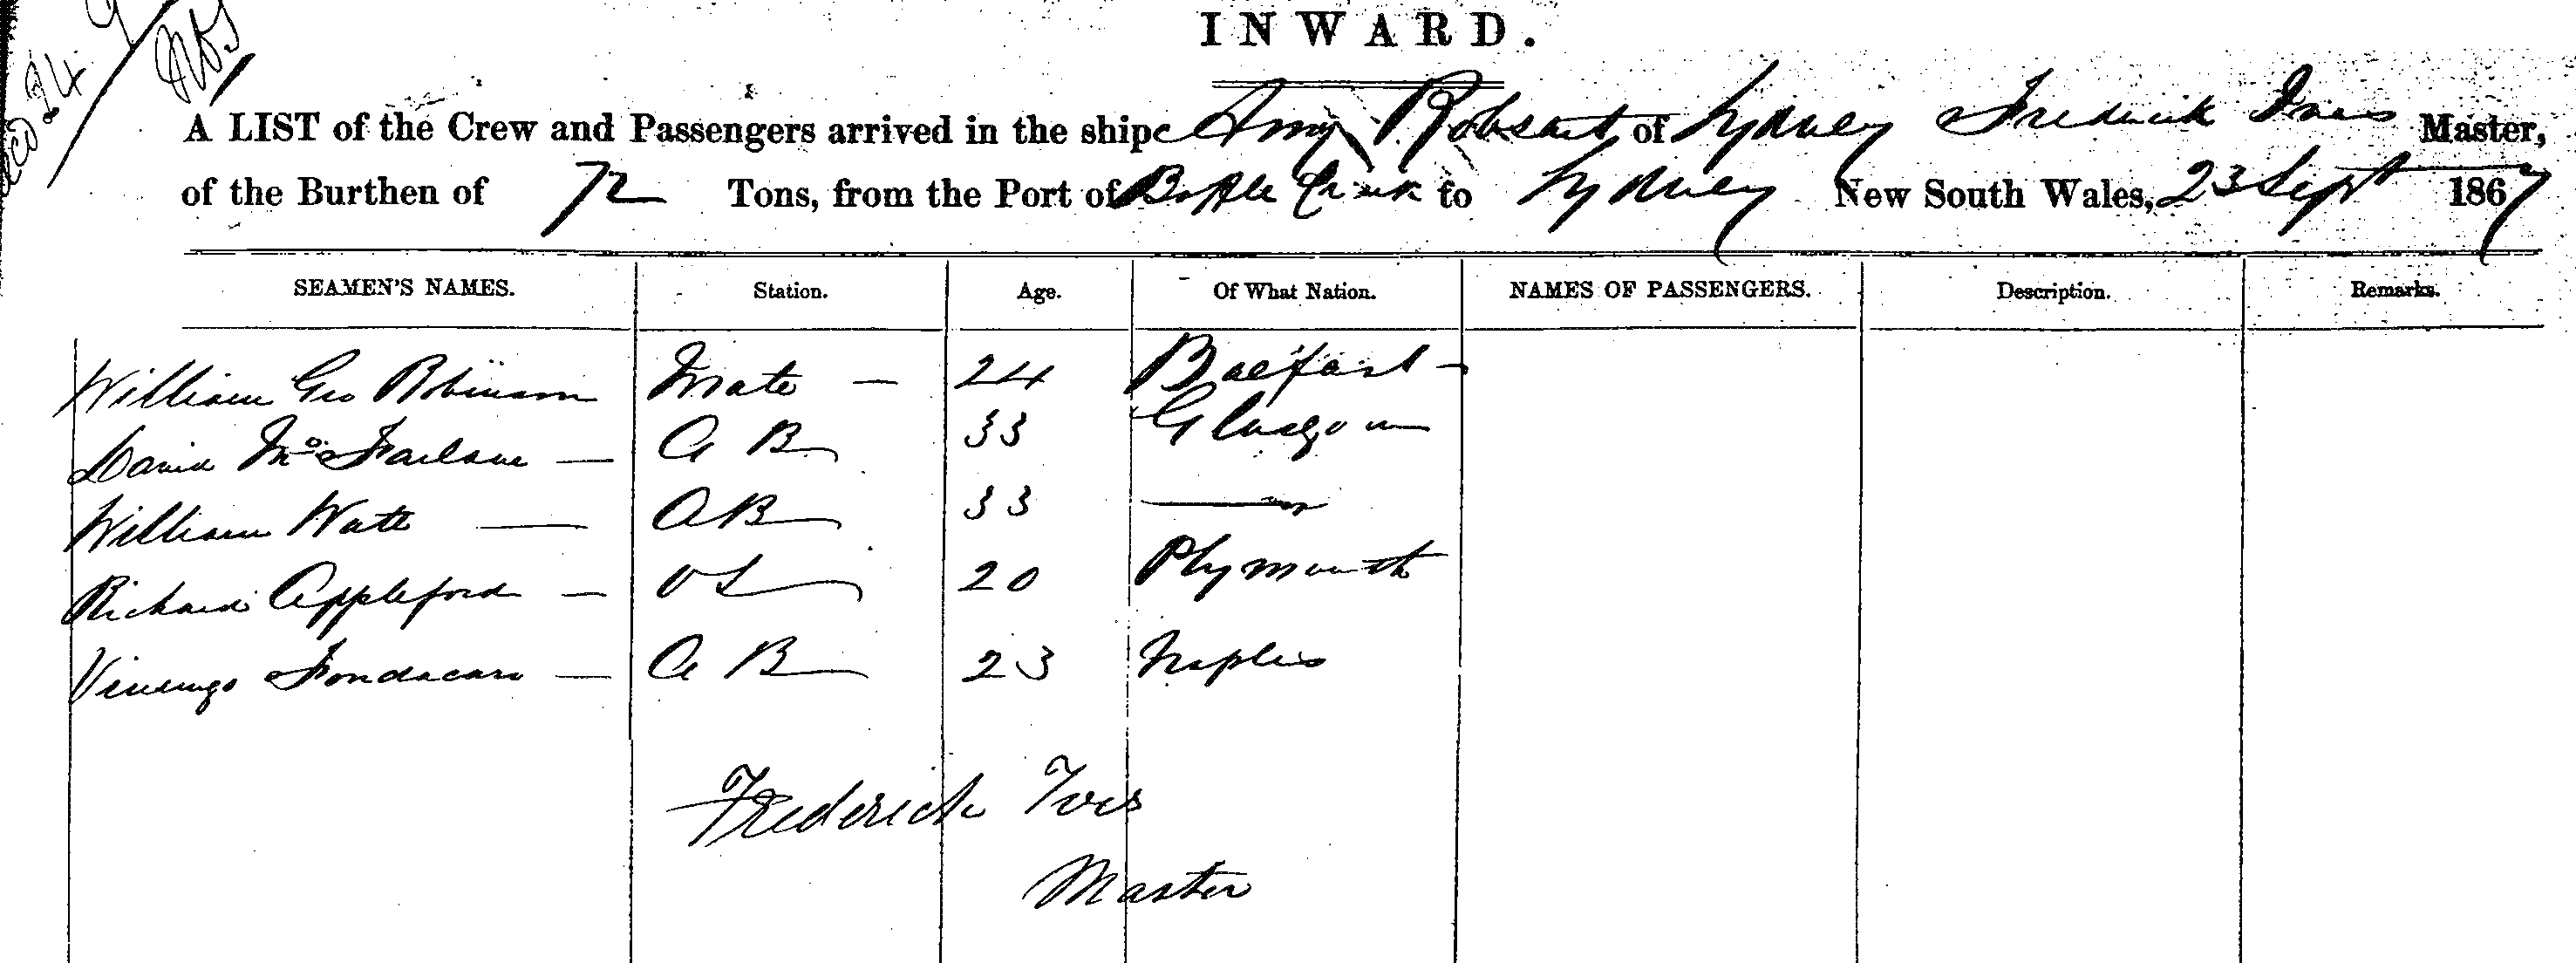 INWARD.
A LIST of the Crew and Passengers arrived in the ship Amy Robsart, of Sydney Frederick Ives Master,
of the Burthen of 72 Tons, from the Port of Bottle Creek to Sydney New South Wales, 23 Sept 1867
SEAMEN'S NAMES. Station. Age. Of What Nation. NAMES OF PASSENGERS. Description. Remarks.
William Geo Robinson Mate — 24 Belfast -
David McFarlane — A B 33 Glasgow
William Watt — A B 33 — "
Richard Appleford — O S 20 Plymouth
Fondacaro — A B 23 Naples
Frederick Ives
Master